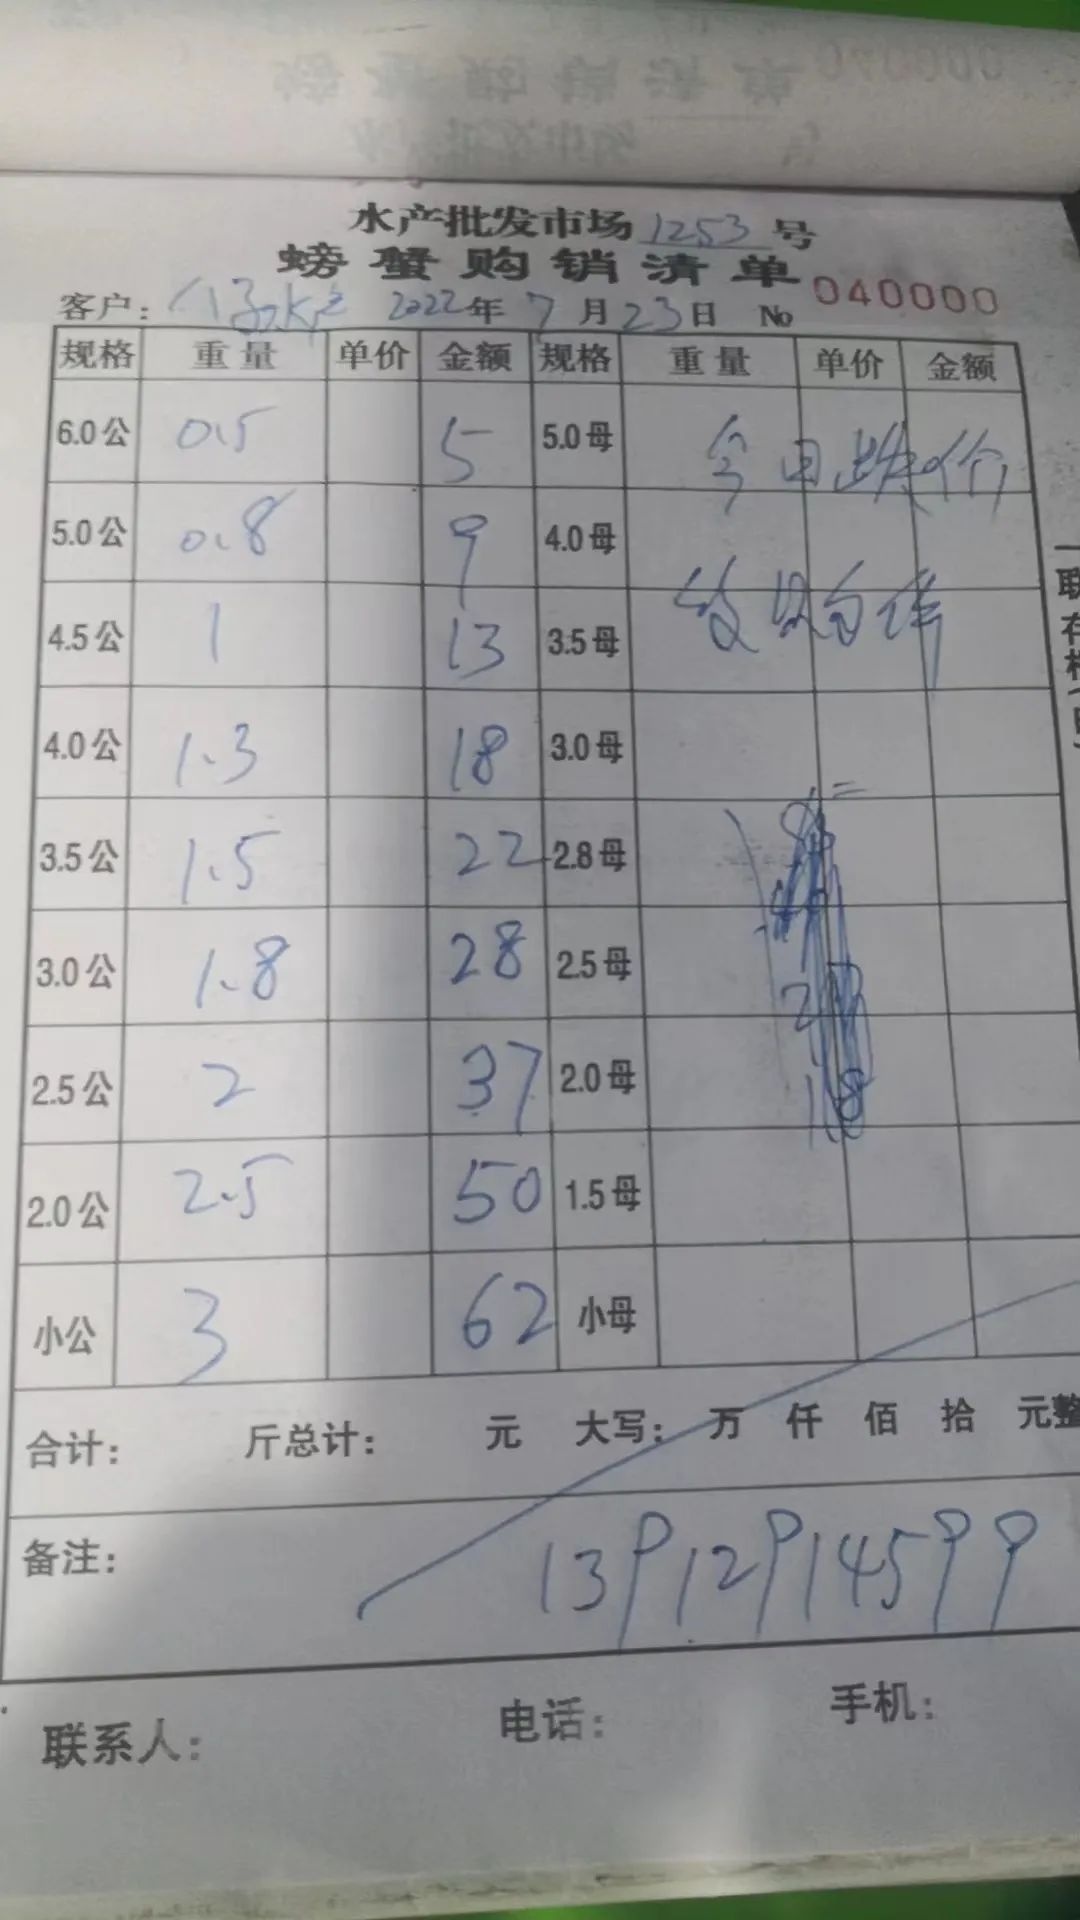 水产批发市场1253号
螃蟹购销清单 040000
客户: 2022年7月23日 No
规格 重量 单价 金额 规格 重量 单价 金额
6.0公 0.5 5 5.0母 今日跌价
5.0公 0.8 9 4.0母
4.5公 1 13 3.5母
4.0公 1.3 18 3.0母
3.5公 1.5 22 2.8母
3.0公 1.8 28 2.5母
2.5公 2 37 2.0母
2.0公 2.5 50 1.5母
小公 3 62 小母
合计: 斤总计: 元 大写: 万 仟 佰 拾 元整
备注: 13912914599
联系人: 电话: 手机: